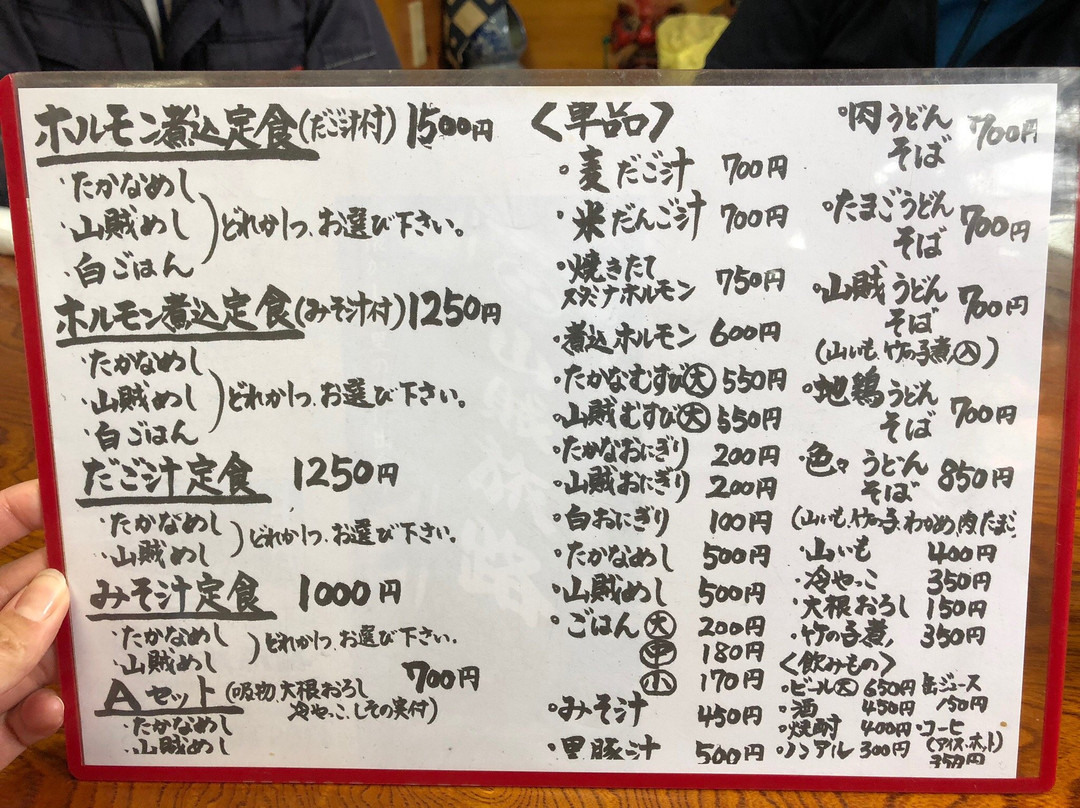 ホルモン煮込定食(だご汁付) 1500円
・たかなめし
・山賊めし
・白ごはん
どれか1つ、お選び下さい。
ホルモン煮込定食(みそ汁付) 1250円
・たかなめし
・山賊めし
・白ごはん
どれか1つ、お選び下さい。
だご汁定食 1250円
・たかなめし
・山賊めし
どれか1つ、お選び下さい。
みそ汁定食 1000円
・たかなめし
・山賊めし
どれか1つ、お選び下さい。
Aセット(吸物、大根おろし 700円
冷やっこ、しその実付)
・たかなめし
・山賊めし
<単品>
・麦だご汁 700円
・米だんご汁 700円
・焼きたて
スタミナホルモン 750円
・煮込ホルモン 600円
・たかなむすび(大) 550円
・山賊むすび(大) 550円
・たかなおにぎり 200円
・山賊おにぎり 200円
・白おにぎり 100円
・たかなめし 500円
・山賊めし 500円
・ごはん(大) 200円
(中) 180円
(小) 170円
・みそ汁 450円
・黒豚汁 500円
・肉うどん
そば 700円
・たまごうどん
そば 700円
・山賊うどん
そば 700円
(山いも、竹の子煮入)
・地鶏うどん
そば 700円
・色々うどん
そば 850円
(山いも、竹の子、わかめ、肉、たまご
・山いも 400円
・冷やっこ 350円
・大根おろし 150円
・竹の子煮 350円
<飲みもの>
・ビール(大) 650円
・酒 450円
・焼酎 400円
・ノンアル 300円
缶ジュース
150円
・コーヒ
(アイス・ホット)
350円